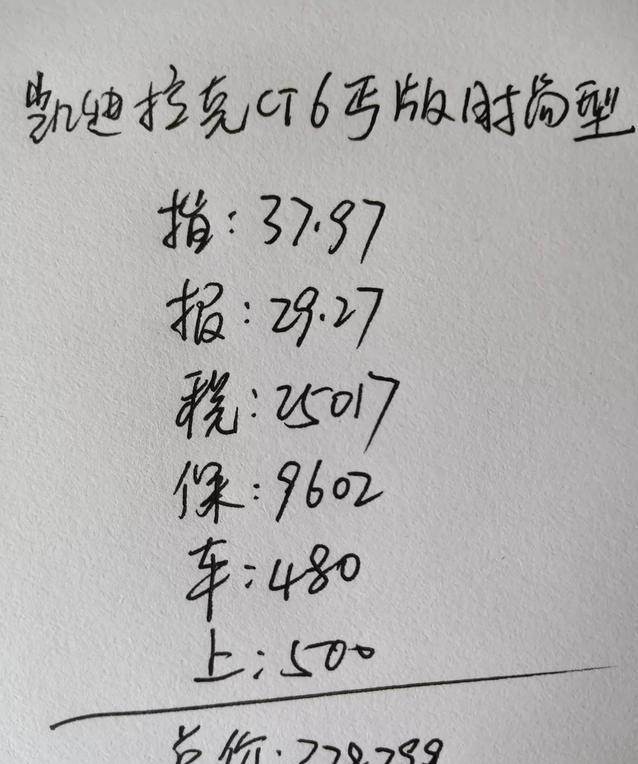 凯迪拉克CT6丐版时尚型
指:37.97
报:29.27
税:25017
保:9602
车:480
上:500
总价:328299